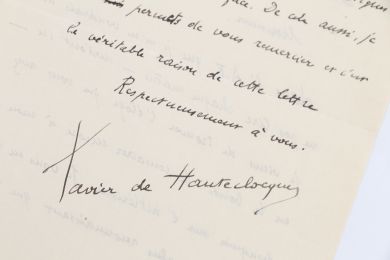 De cela aussi, je
permets de vous remercier et c'est
la véritable raison de cette lettre
Respectueusement à vous.
Xavier de Hauteclocque